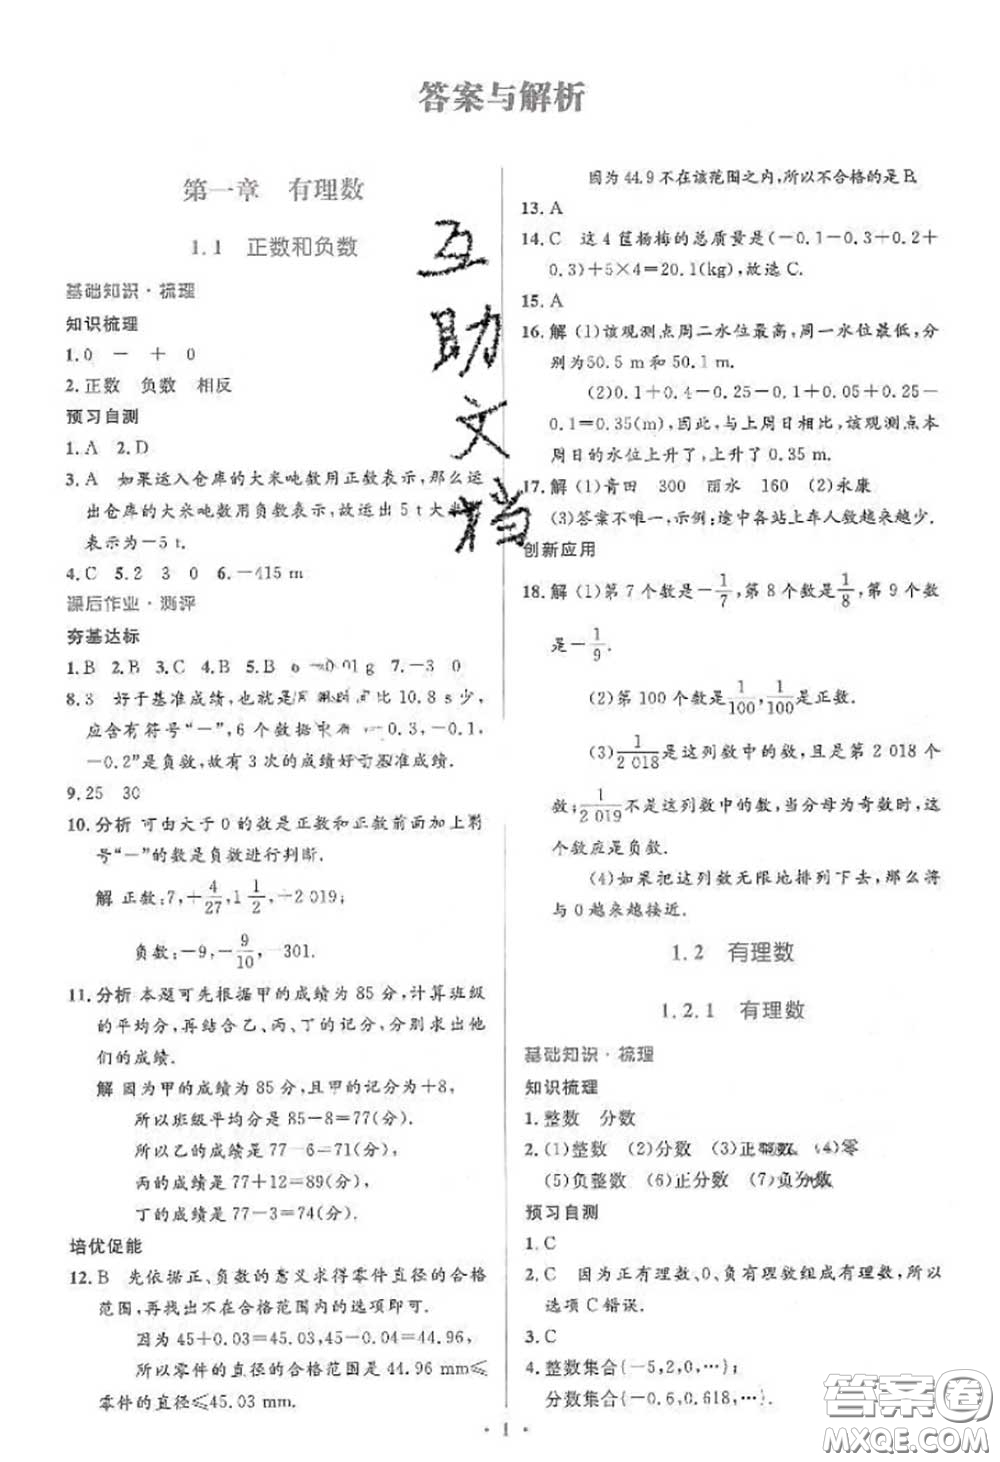 答案与解析
第一章 有理数
1.1 正数和负数
基础知识·梳理
知识梳理
1.0 － ＋ 0
2.正数 负数 相反
预习自测
1.A 2.D
3.A 如果运入仓库的大米吨数用正数表示,那么运
出仓库的大米吨数用负数表示,故运出5 t大
表示为－5 t.
4.C 5.2 3 0 6.－415 m
课后作业·测评
夯基达标
1.B 2.B 3.C 4.B 5.B 6. －0.01 g 7.－3 0
8.3 好于基准成绩,也就是 比10.8 s少,
应含有符号“－”,6个数据中 －0.3,－0.1,
－0.2”是负数,故有3次的成绩好于基准成绩.
9.25 30
10.分析 可由大于0的数是正数和正数前面加上符
号“－”的数是负数进行判断.
解 正数:7,＋4/27,1 1/2,－2 019;
负数:－9,－9/10,－301.
11.分析 本题可先根据甲的成绩为85分,计算班级
的平均分,再结合乙、丙、丁的记分,分别求出他
们的成绩.
解 因为甲的成绩为85分,且甲的记分为＋8,
所以班级平均分是85－8＝77(分).
所以乙的成绩是77－6＝71(分),
丙的成绩是77＋12＝89(分),
丁的成绩是77－3＝74(分).
培优促能
12.B 先依据正、负数的意义求得零件直径的合格
范围,再找出不在合格范围内的选项即可.
因为45＋0.03＝45.03,45－0.04＝44.96,
所以零件的直径的合格范围是44.96 mm≤
零件的直径≤45.03 mm.
互
助
文
档
因为44.9不在该范围之内,所以不合格的是B.
13.A
14.C 这4筐杨梅的总质量是(－0.1－0.3＋0.2＋
0.3)＋5×4＝20.1(kg),故选C.
15.A
16.解 (1)该观测点周二水位最高,周一水位最低,分
别为50.5 m和50.1 m.
(2)0.1＋0.4－0.25－0.1＋0.05＋0.25－
0.1＝0.35(m),因此,与上周日相比,该观测点本
周日的水位上升了,上升了0.35 m.
17.解 (1)青田 300 丽水 160 (2)永康
(3)答案不唯一,示例:途中各站上车人数越来越少.
创新应用
18.解 (1)第7个数是－1/7,第8个数是1/8,第9个数
是－1/9.
(2)第100个数是1/100,1/100是正数.
(3)1/2 018是这列数中的数,且是第2 018个
数;1/2 019不是这列数中的数,当分母为奇数时,这
个数应是负数.
(4)如果把这列数无限地排列下去,那么将
与0越来越接近.
1.2 有理数
1.2.1 有理数
基础知识·梳理
知识梳理
1.整数 分数
2.(1)整数 (2)分数 (3)正整数 (4)零
(5)负整数 (6)正分数 (7)负分数
预习自测
1.C
2.C 因为正有理数、0、负有理数组成有理数,所以
选项C错误.
3.C
4.整数集合{－5,2,0,…};
分数集合{－0.6,0.618,…}.
· 1 ·
答案圈
MXQE.COM